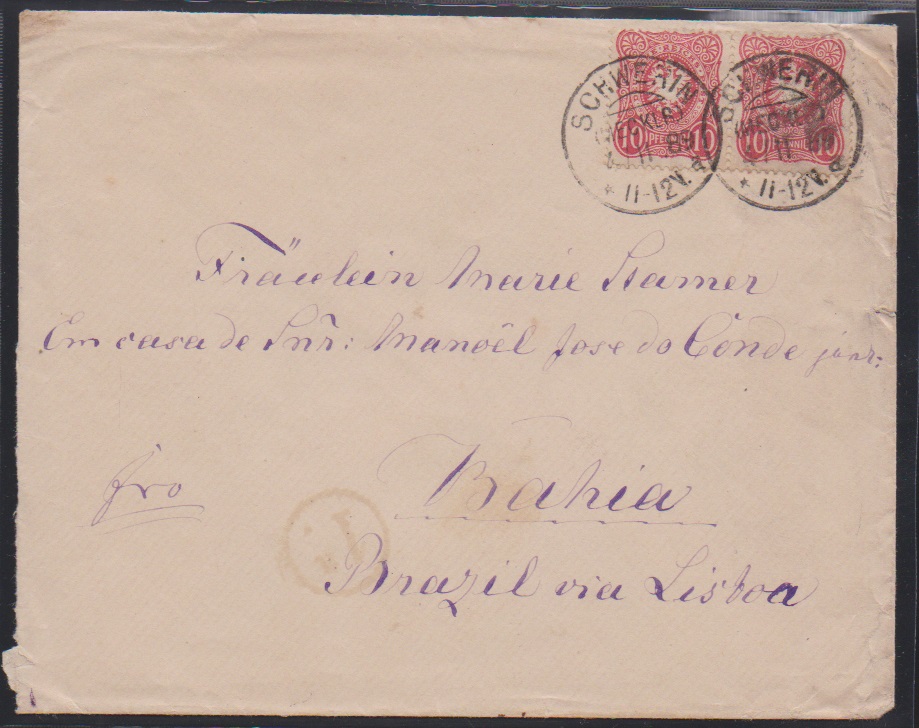 SCHWERIN SCHWERIN
10 PFENNIG 10 10 PFENNIG 10
* 11-12V. a * 11-12V. a
Fräulein Marie Stamer
Em casa de Snr: Manoêl Jose do Conde junr:
fro Bahia
Brazil via Lisboa